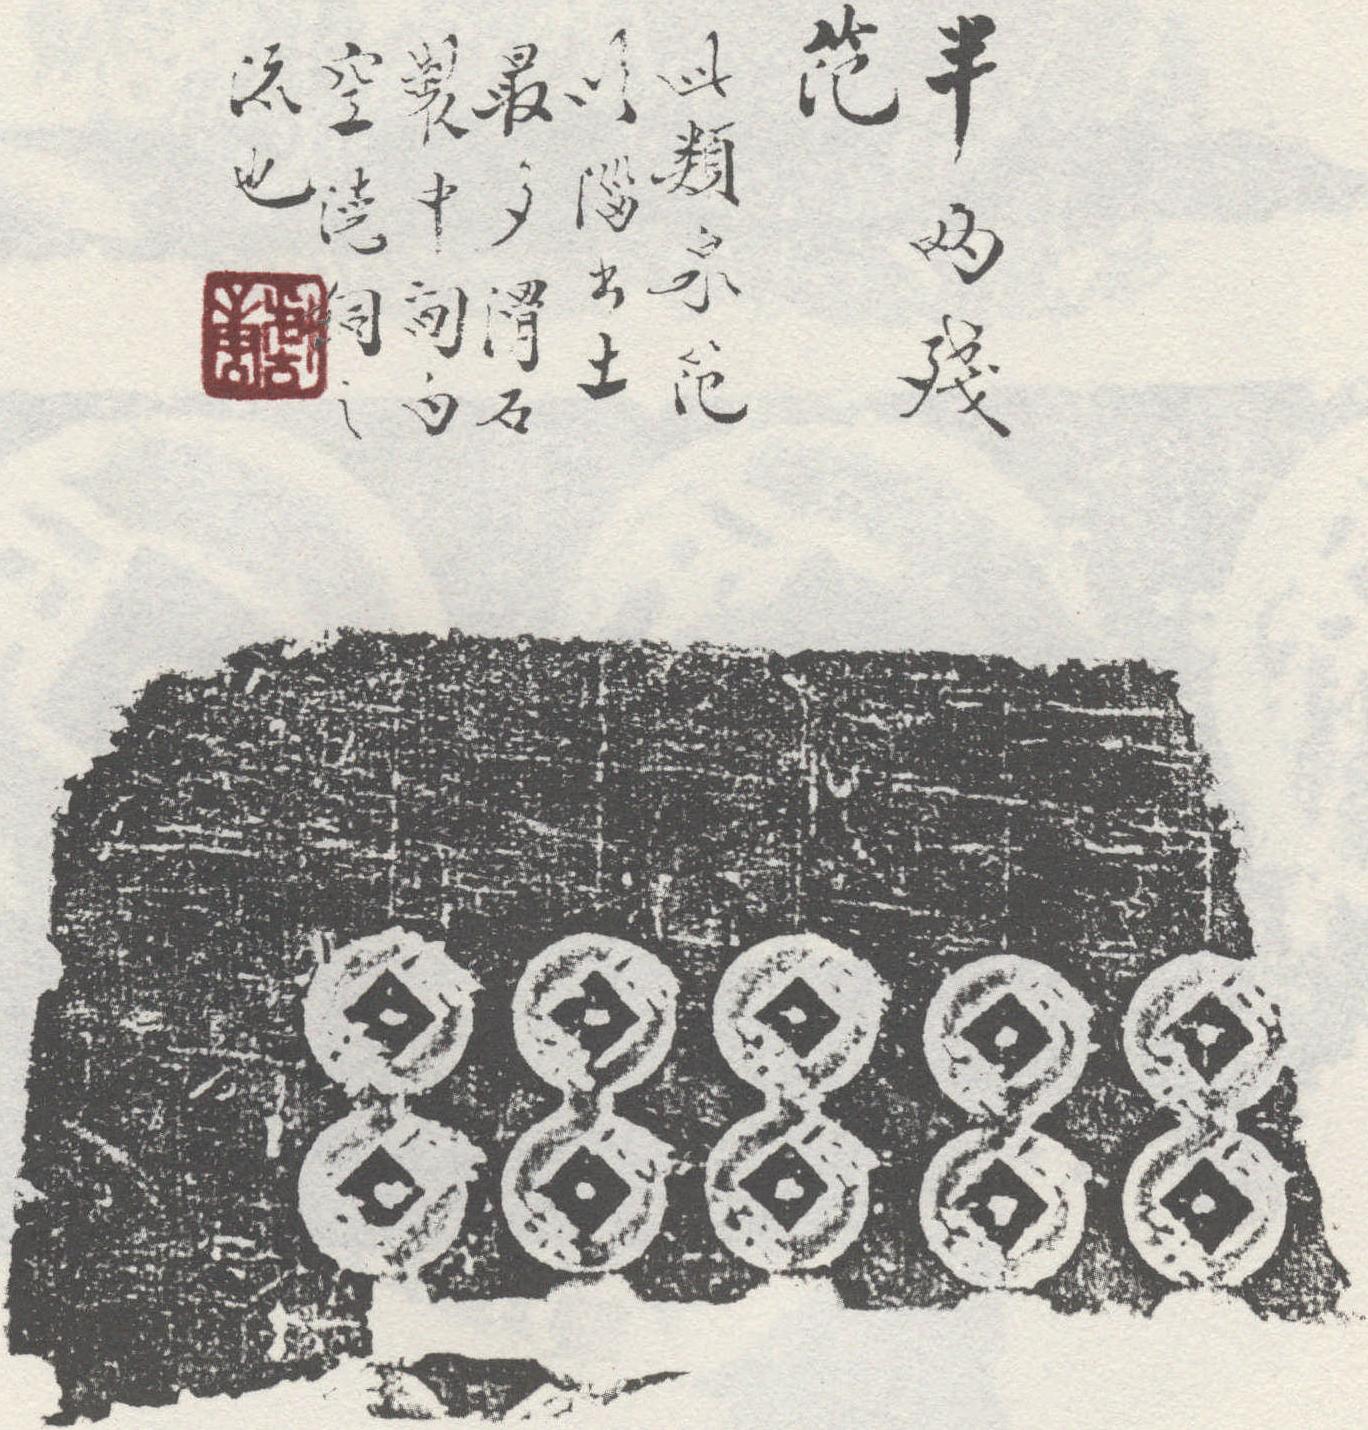 半两殘
范
此類泉范
以淄出土
最多滑石
製中間
空澆銅之
流也